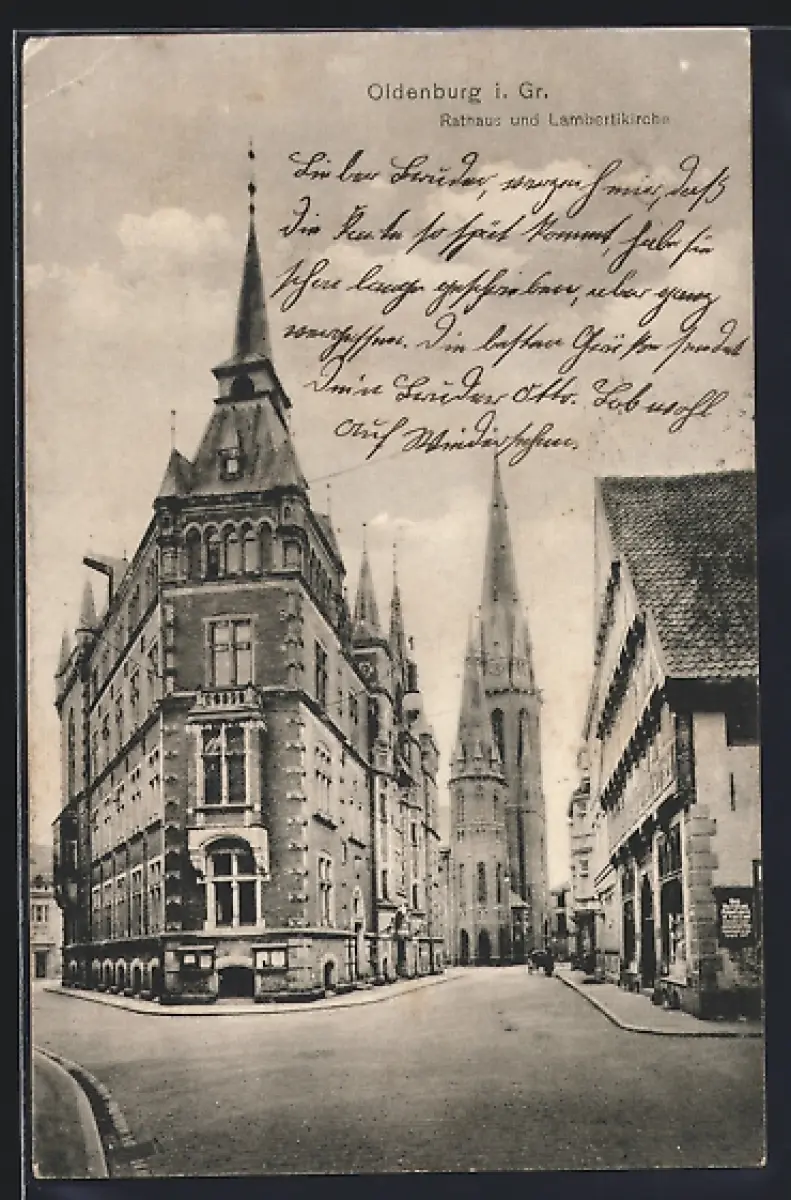 Oldenburg i. Gr.
Rathaus und Lambertikirche
Lieber Bruder, verzeih mir, daß
die Karte so spät kommt, habe sie
schon lange geschrieben, aber ganz
vergessen. Die besten Grüße sendet
Dein Bruder Otto. Leb wohl
auf Wiedersehen.